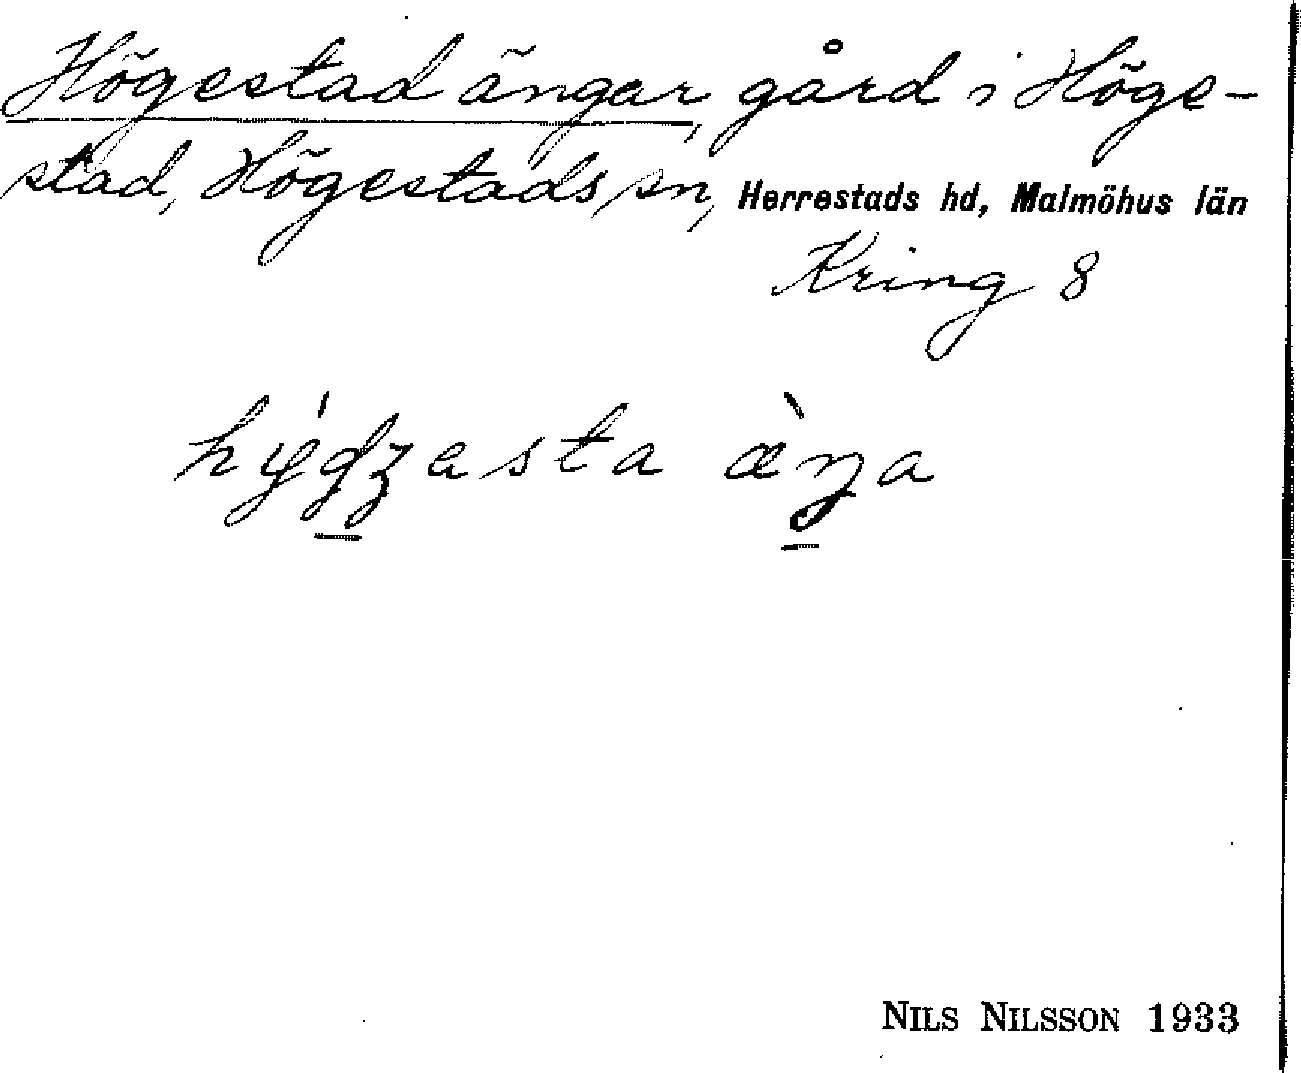 Högestad ängar, gård i Höge-
stad, Högestads sn, Herrestads hd, Malmöhus län
Kring 8
hýqʒasta æ̀ŋa
NILS NILSSON 1933